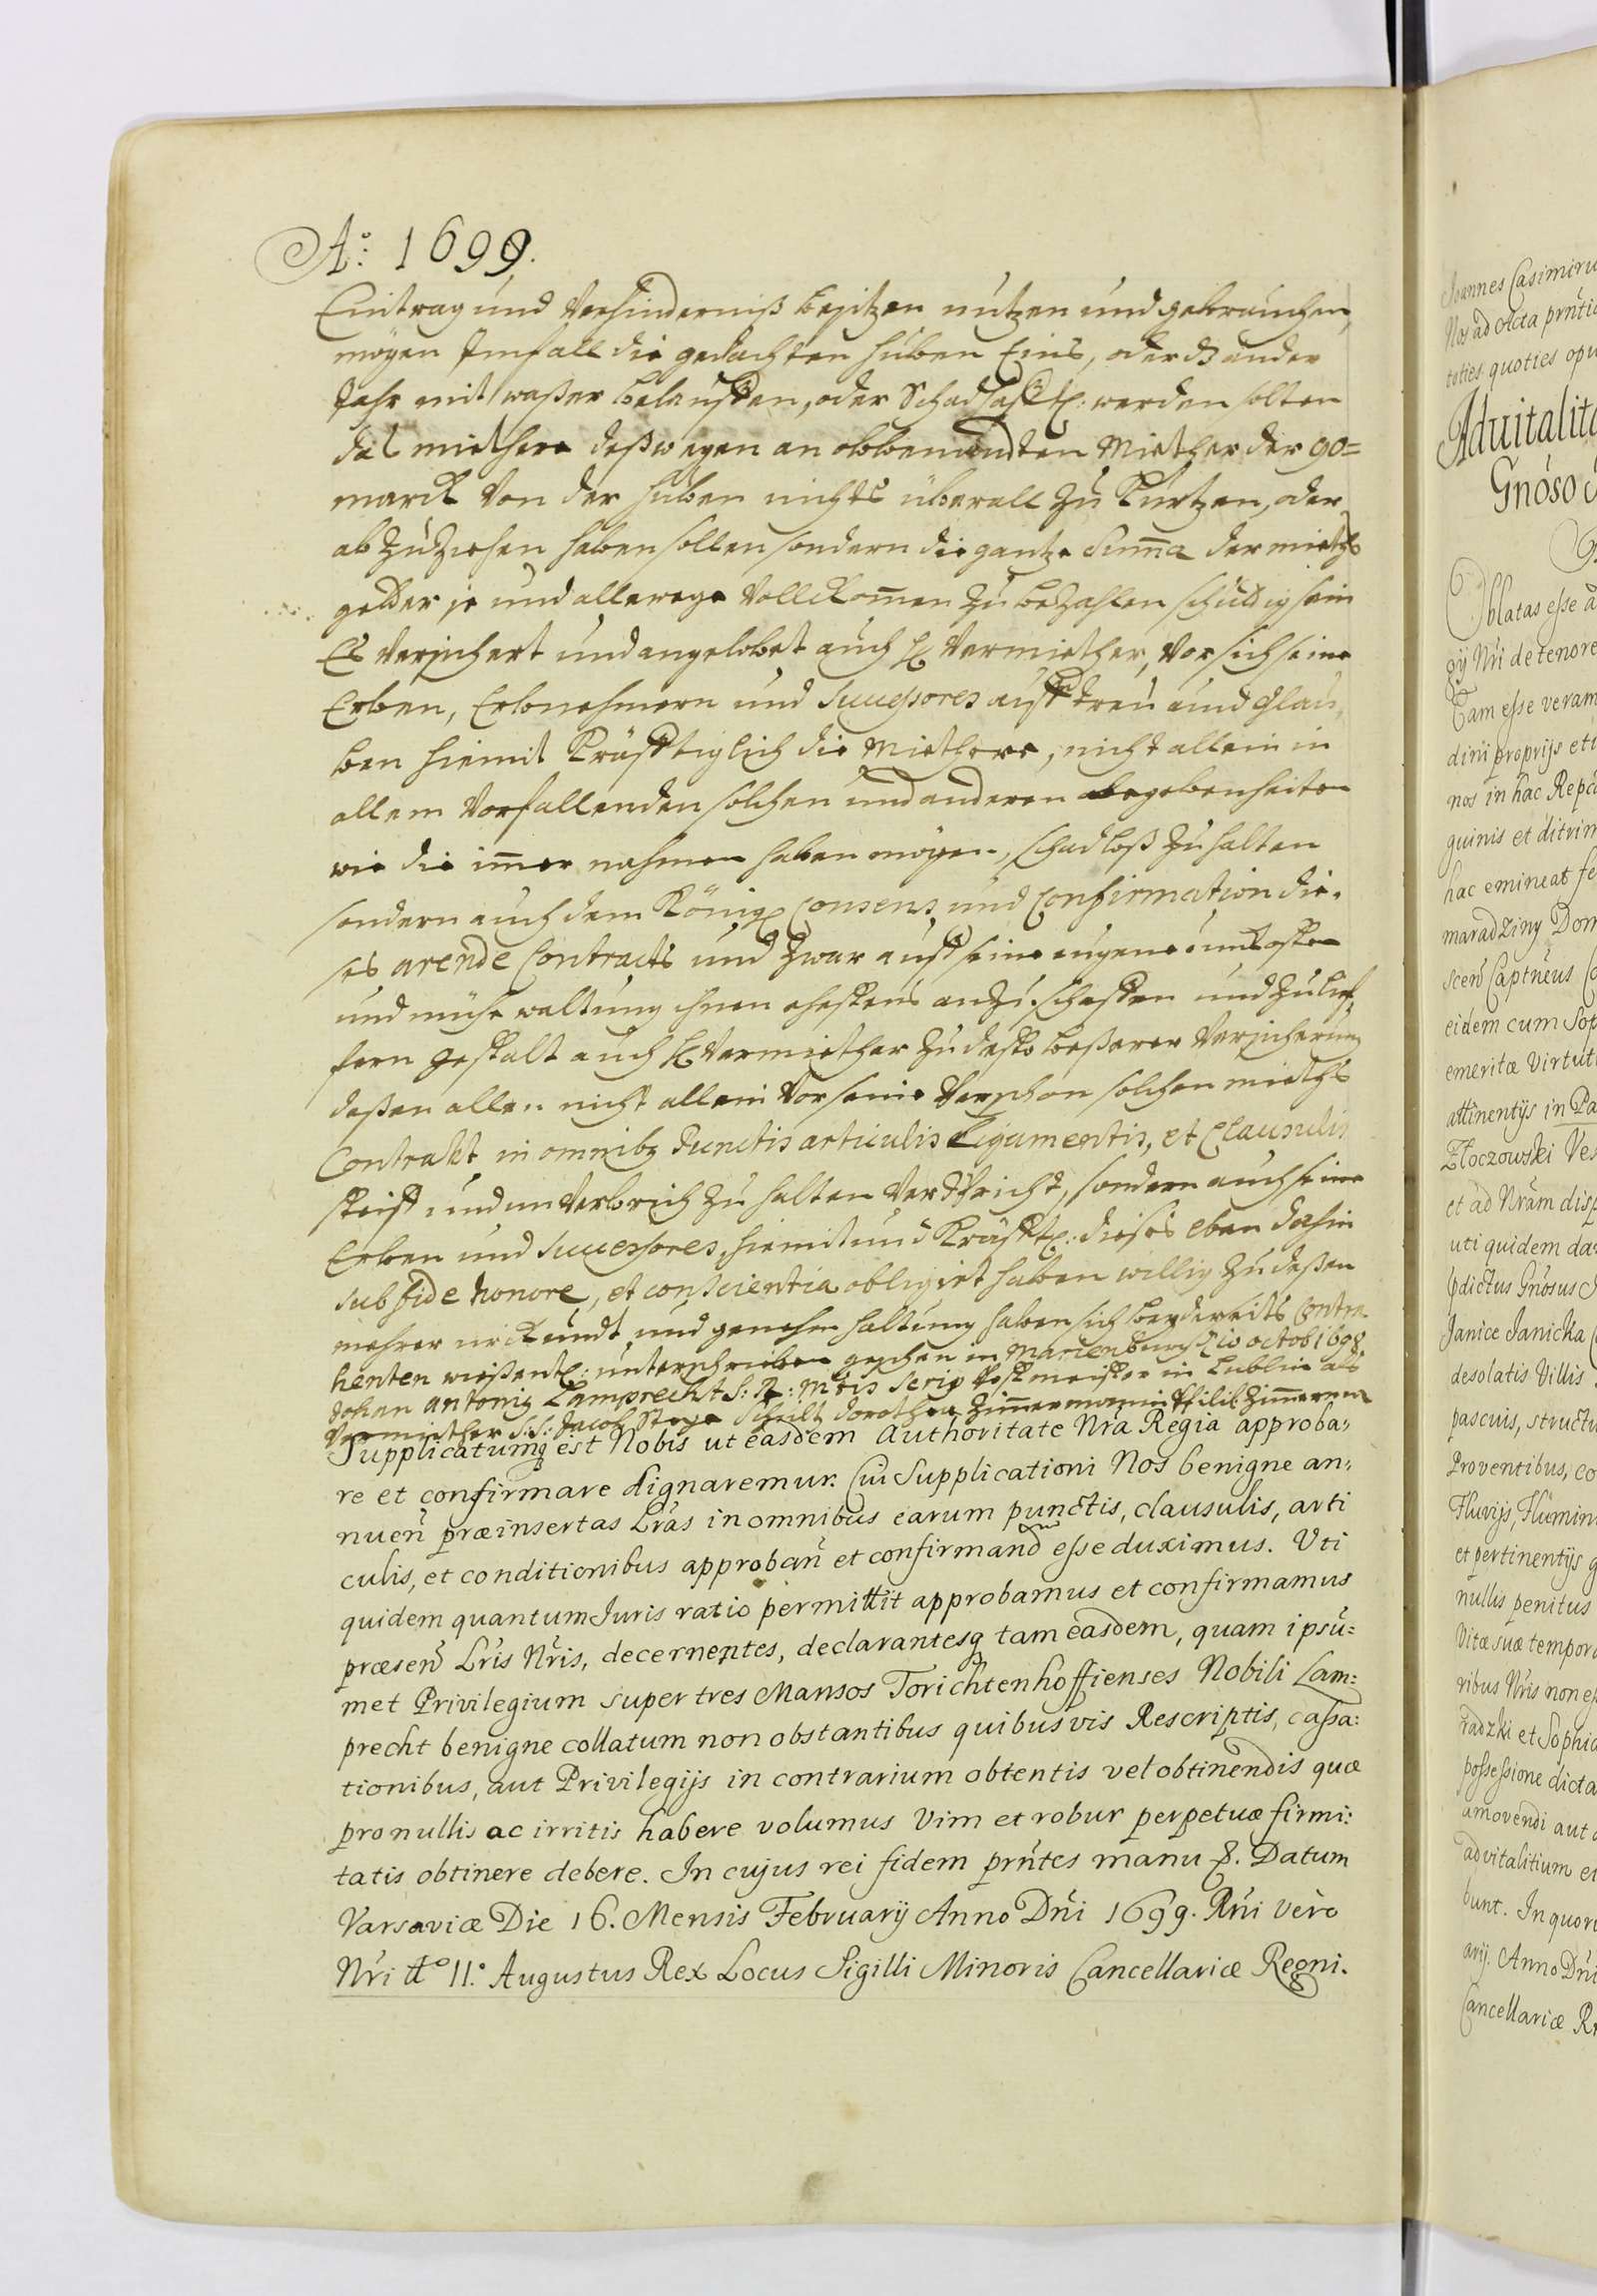 Aº: 1699.
Eintrag und Verhinderniß besitzen nützen und gebrauchen,
mögen Imfall die gedachten huben Eins, oder ds ander
Jahr mit waßer belauffen, oder Schadhafft: werden solten
daß miethere deßwegen an obbenandten Miether der 90=
marck Von der huben nichts überall zu kürtzen, oder
abzuziehen haben sollen sondern die gantze Suma der mieths
gelder je und allewege Vollkomen zu bezahlen schuldig sein
Es Versichert und angelobet auch H Vermiether, Vor sich seine
Erben, Erbnehmern und Successores auff treu und Glau,
ben hiemit Kräfftiglich die Miethere, nicht allein in
allem Vorfallenden solchen und anderen begebenheiten
wie die imer nahmen haben mögen, schadloß zu halten
sondern auch dem Königl Consens und Confirmation die-
ses arende Contracts und zwar auff seine eugene unkosten
und mühe waltung ihnen ehestens anzuschaffen und zu lief,
fern gestalt auch H Vermiether zu desto beßerer Versicherung
deßen allen nicht allein Vor seine Persohn solchen mieths
Contrakt in omnibq Punctis articulis Ligamentis, et Clausulis
steiff und unverbrich zu halten Verspricht, sondern auch seine
Erben und Successores, hiemit und Kräfftl: dieses eben dahin
sub fide honore, et conscientia obligirt haben willig zu deßen
mehrer urckundt und genehm haltung haben sich beyderseits Contra-
henten wießentl: unterschrieben geschen in Marienburg 10 octob 1698
Johan Antonig Lamprecht S: R: Mtis Postmeister in Lublin als
Vermiether S.S: Jacob Dorothea Zimmermanin Philib Zimerman
Supplicatumq est Nobis ut easdem Authoritate Nra Regia approba,
re et confirmare dignaremur. Cui Supplicationi Nos benigne an,
nuen præinsertas Lras in omnibus earum punctis, clausulis, arti
culis, et conditionibus approban et confirmand esse duximus. Uti
quidem quantum Juris ratio permittit approbamus et confirmamus
præsen Lris Nris, decernentes, declarantesq tam easdem, quam ipsu=
met Privilegium super tres Mansos Torichtenhoffienses Nobili Lam:
precht benigne collatum non obstantibus quibusvis Rescriptis, cassa:
tionibus, aut Privilegijs in contrarium obtentis vel obtinendis quæ
pro nullis ac irritis habere volumus Vim et robur perpetuæ firmi:
tatis obtinere debere. In cujus rei fidem prntes manu &. Datum
Varsaviæ Die 16. Mensis Februarij Anno Dni 1699. Rni vero
Nri tto II.º Augustus Rex Locus Sigilli Minoris Cancellariæ Regni.
Joannes Casimiru
Nos ad Acta prnti
toties quoties opu
Aduitalita
Gnoso
Oblatas esse a
gij Nri de tenore
Tam esse veram
dini proprijs et
nos in hac Repca
guinis et ditrim
hac emineat fe
maradziny Dom
scen Captneus Co
eidem cum Sop
emeritæ Virtuti
attinentijs in Pa
Złoczowski Ves
et ad Nram disp
uti quidem da
pdictus Gnosus J
Janice Janicka
desolatis Villis
pascuis, structu
Proventibus, co
Fluvijs, Flumin
et pertinentijs g
nullis penitus
Vitæ suæ tempora
ribus Nris non es
radzki et Sophia
possessione dicta
amovendi aut a
advitalitium e
bunt. In quoru
arij. Anno Dni
Cancellariæ R